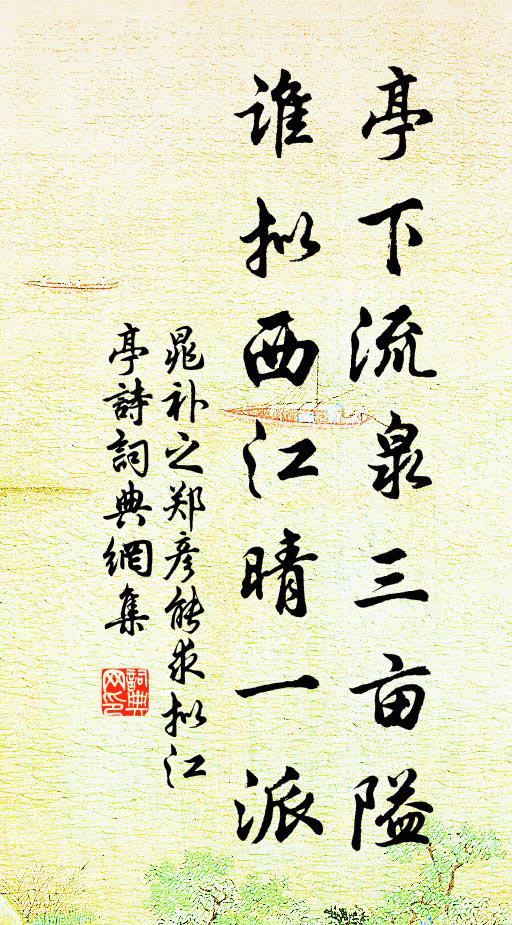 亭下流泉三亩隘
谁拟西江晴一派
晁补之郑彦能求拟江
亭詩詞典網集
詞典网印